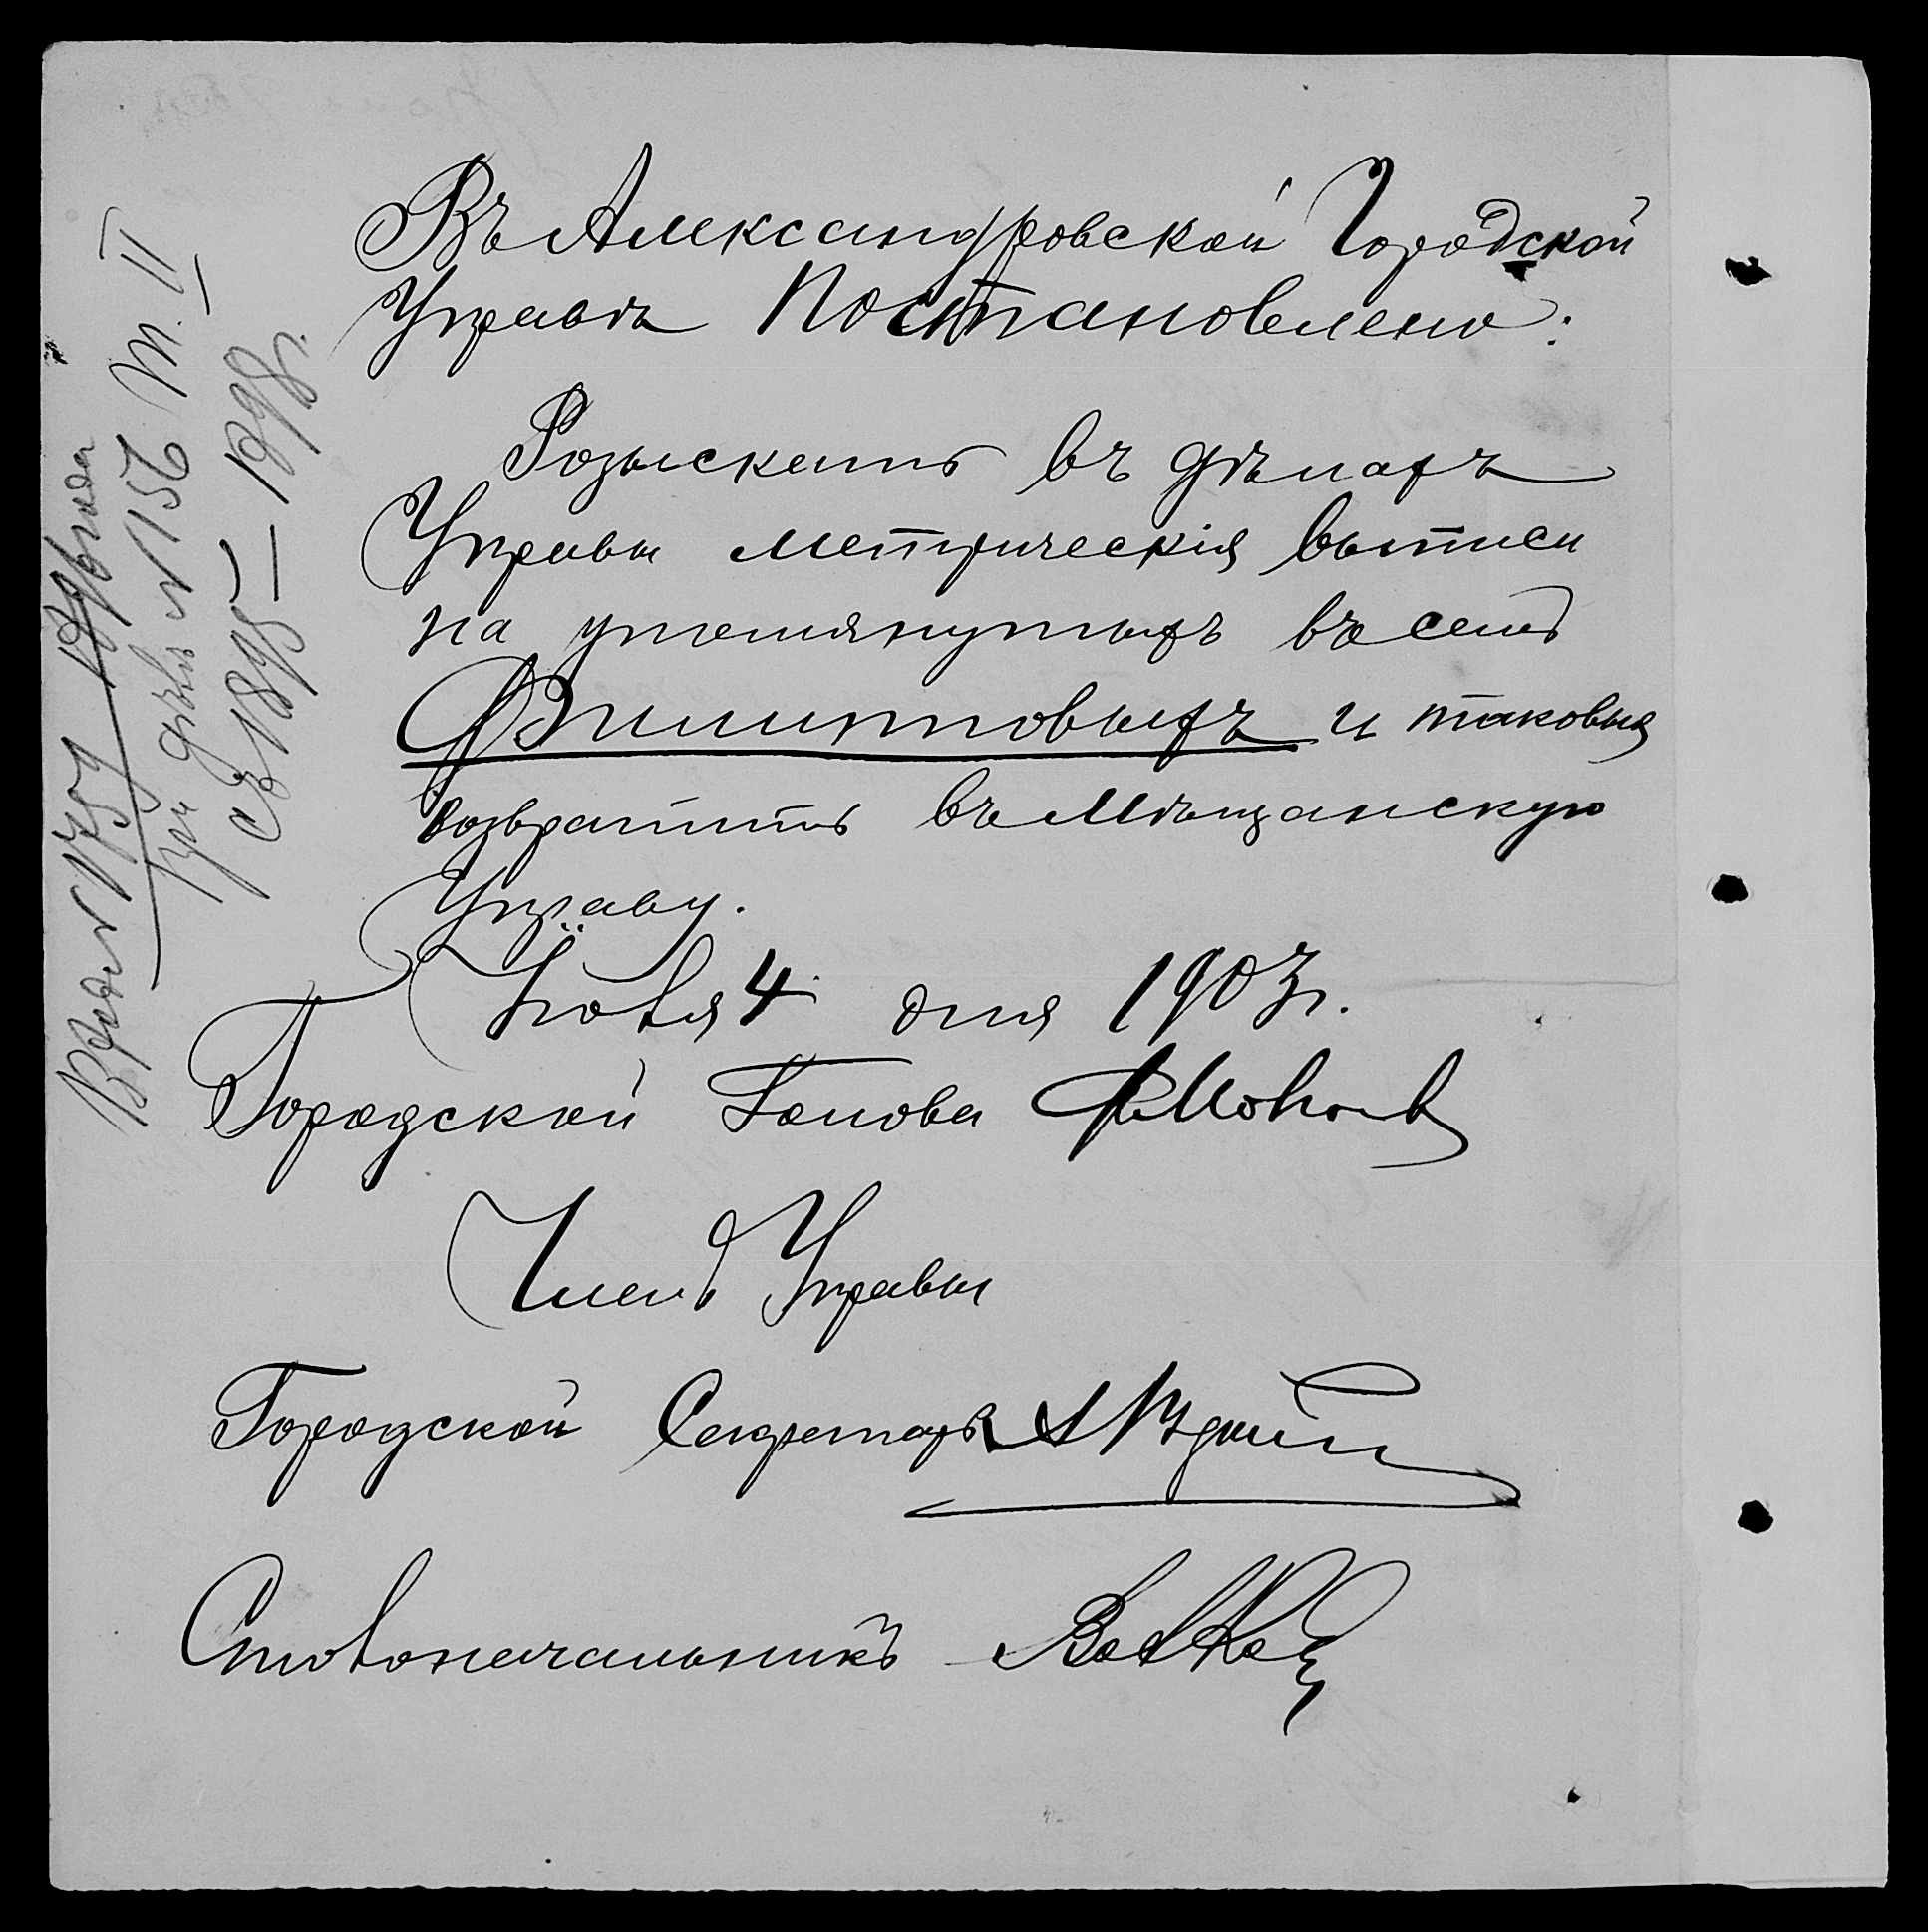 Въ Александровской Городской
Управѣ Постановлено:
Розыскать въ дѣлахъ
Управы метрическія выписи
на упомянутыхъ въ семъ
Филипповыхъ и таковыя
возвратить въ Мѣщанскую
Управу.
Іюля 4 дня 1903 г.
Городской Голова
Членъ Управы
Городской Секретарь
Столоначальникъ
при дѣлѣ № 156 т. II
съ 1895 — 1898 г.